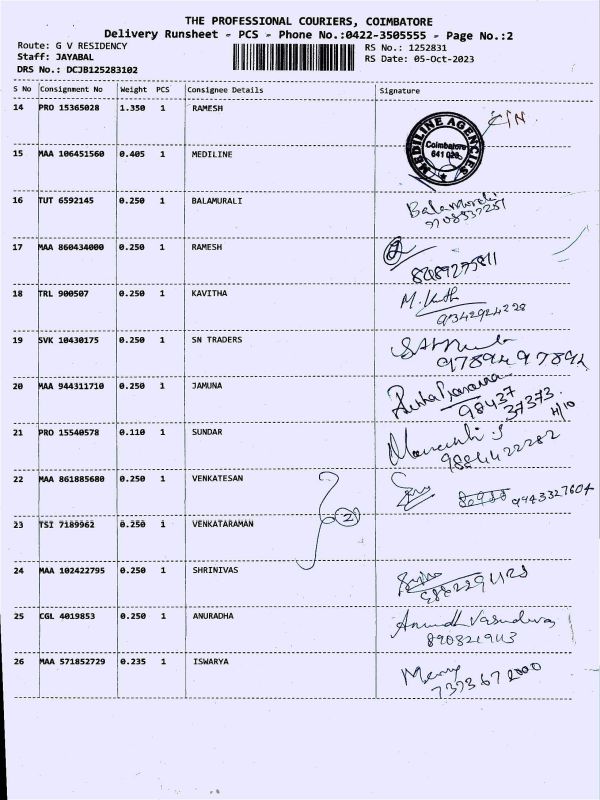 THE PROFESSIONAL COURIERS, COIMBATORE
Delivery Runsheet - PCS - Phone No.:0422-3505555 - Page No.:2
Route: G V RESIDENCY RS No.: 1252831
Staff: JAYABAL RS Date: 05-Oct-2023
DRS No.: DCJB125283102
S No Consignment No Weight PCS Consignee Details Signature
14 PRO 15365028 1.350 1 RAMESH
MEDILINE AGENCIES
Coimbatore
641 028
15 MAA 106451560 0.405 1 MEDILINE
16 TUT 6592145 0.250 1 BALAMURALI Balamurali
17 MAA 860434000 0.250 1 RAMESH
8489295811
18 TRL 900507 0.250 1 KAVITHA
9342924228
19 SVK 10430175 0.250 1 SN TRADERS
9789497892
20 MAA 944311710 0.250 1 JAMUNA
98437
37373
H/10
21 PRO 15540578 0.110 1 SUNDAR
9884422282
22 MAA 861885680 0.250 1 VENKATESAN
9943327604
23 TSI 7189962 0.250 1 VENKATARAMAN 2
24 MAA 102422795 0.250 1 SHRINIVAS
25 CGL 4019853 0.250 1 ANURADHA
890821943
26 MAA 571852729 0.235 1 ISWARYA
7373672000